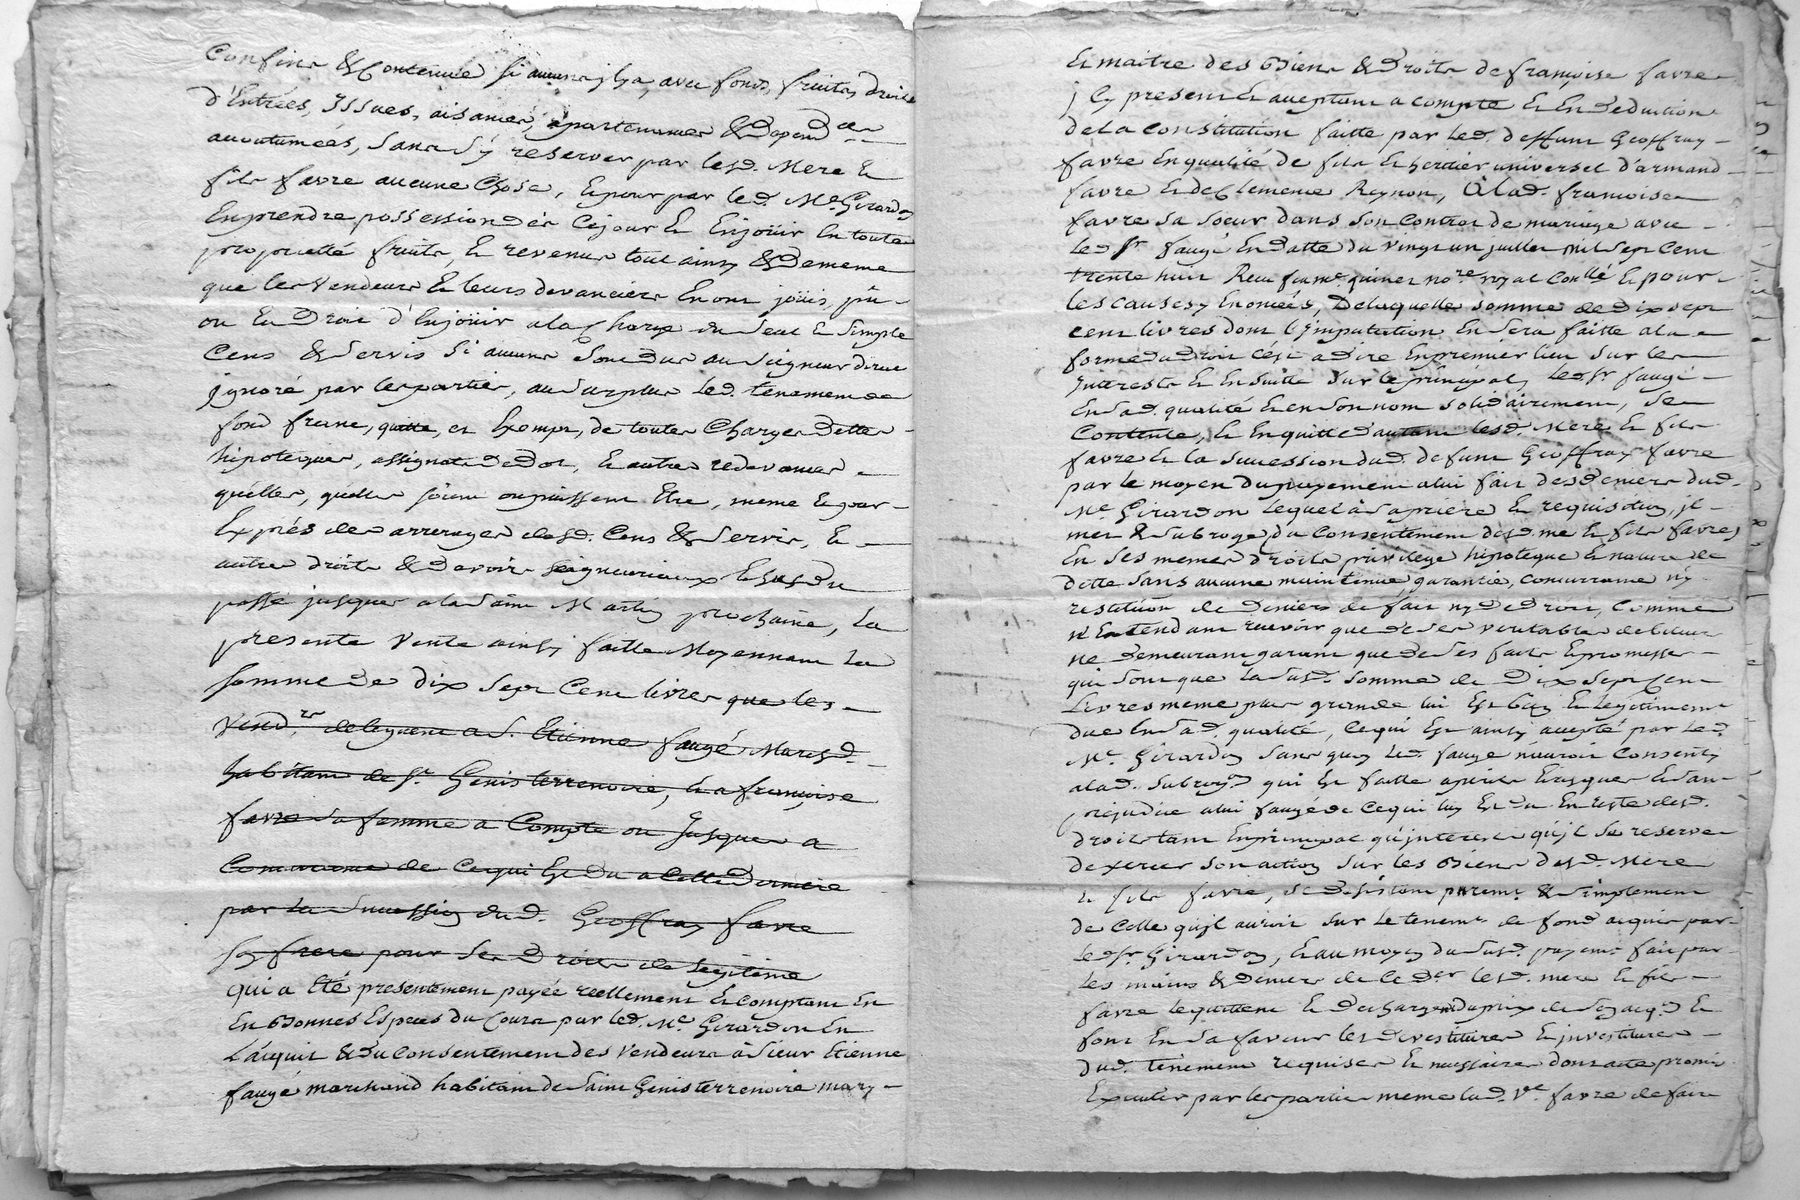 Confins & Contenue si aucuns jl y a, avec fonds, fruits, droits
d'Entrées, Issues, aisances, apartenances & Depend.ces
acoutumées, sans s'y reserver par lesd. Mere Et
fils favre aucune Chose, Et pour par led. Me. Girardon
En prendre possession dés Cejour Et Enjoüir En toutte
proprietté fruits, Et revenus tout ainsy & De meme
que les Vendeurs Et leurs devanciers En ont joüis, pû
ou Eu Droit d'Enjoüir a la Charge du seul Et simple
Cens & servis si aucuns sont dus au seigneur direct
jgnoré par les parties, au surplus led. tenement de
fond franc, quitte, et Exempt, de toutes Charges Dettes
hipoteques, assignats De Dot, Et autres redevances
quélles, quélles soient ou puissent Etre, meme Et par
Exprés des arrerages desd. Cens & servis, Et
autres droits & Devoirs seigneuriaux Et du
passé jusques a la saint Martin prochaine, La
presente Vente ainsy faitte Moyennant La
somme De dix sept Cent livres que les
Vend.rs deleguent a S. Etienne faugé March.d
habitant de St. Genis terrenoire, Et a françoise
favre sa femme a Compte ou Jusques a
de Cequi Est du a Cette Derniere
par la succession dud. Geoffray favre
son frere pour ses Droits de legitime
qui a Eté presentement payée réellement Et comptant En
En Bonnes Espéces du Cours par led. Me. Girardon En
L'acquit & du Consentement des Vendeurs à sieur Etienne
faugé marchand habitant de Saint Genis terrenoire mary
Et maitre des Biens & Droits de françoise favre
jCy present Et aceptant a compte Et En Deduction
de La Constitution faitte par led. deffunt Geoffray
favre En qualité de fils Et heritier universel d'armand
favre Et de Clemence Reynon, à lad. francoise
favre sa soeur dans son Contrat de mariage avec
led. Sr. faugé En datte du Vingt un juillet Mil sept Cent
trente huit Recu quinet no.re royal Et pour
les causes y Enoncées, De laquelle somme de Dix sept
cent livres dont l'jmputation En sera faitte a la
forme du droit c'ést a dire En premier lieu sur les
Jnterests Et En suitte sur le principal, led. Sr. faugé
En sad. qualité Et en son nom solidairement, se
Contente, Et En quitte d'autant lesd. Mere Et fils
favre Et la succession dud. defunt Geoffray favre
par le moyen du payement a lui fait des Deniers dud.
Me. Girardon Lequel à sa priére Et requisition, jl
met & subroge, du Consentement desd. mere Et fils favre,
En ses memes droits privilege hipoteque Et nature de
dette sans aucune maintenue garantie, concurrance n'y
restitution de Deniers de fait ny De Droit, Comme
n'Entendant recevoir que de ses veritables debiteurs
Ne Demeurant garant que De ses faits Et promesses
qui sont que La susd. somme de Dix sept Cent
Livres meme plus grande lui Est Bien Et legitimement
Due En sad. qualité, Cequi Est ainsy acepté par Led.
Me. Girardon sans quoy Led. faugé n'auroit Consenty
a lad. subrog.on qui Est faitte a perils Et risques Et san
prejudice a lui faugé de Cequi luy Est du En reste desd.
droits tant En principal qu'interests qu'jl se reserve
d'exercer son action sur les Biens desd. Mere
Et fils favre, se Desistant purem.t & simplement
de Celle qu'jl auroit sur le tenem.t de fond acquis par
Led. Sr. Girardon, Et au moyen du susd. payem.t fait par
Les mains & Deniers de Ce Der lesd. mere Et fils
favre le quittent Et Dechargent Du prix de son acq.on Et
font En sa faveur les Devestitures Et jnvestitures
dud. tenement requises Et necessaires dont acte promis
Executer par les parties meme lad. Ve. favre de faire